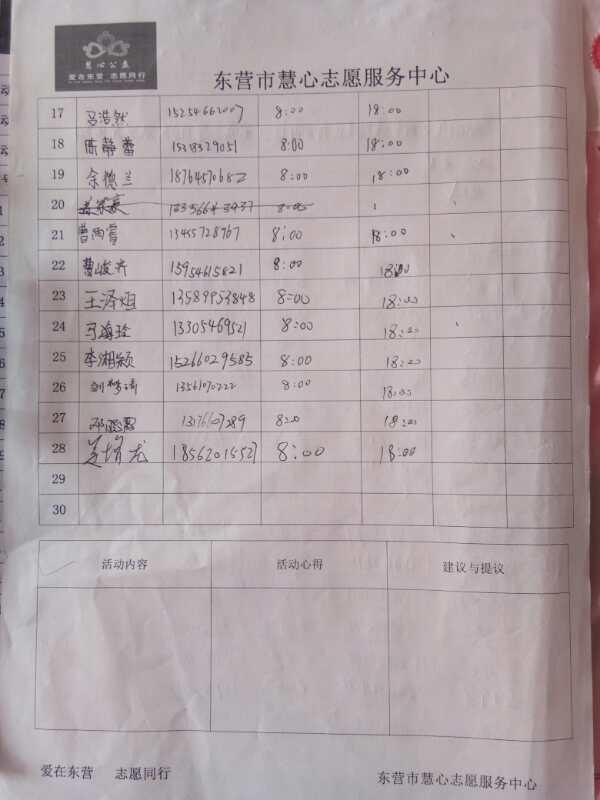 慧心公益
爱在东营 志愿同行
东营市慧心志愿服务中心
17 马浩然 15254662007 8:00 18:00
18 陈静蕾 15318329051 8:00 18:00
19 余德兰 18764570682 8:00 18:00
20 8:00
21 曹陶蕾 13455728767 8:00 18:00
22 曹峻齐 15954615821 8:00 18:00
23 王泽烜 13589953848 8:00 18:00
24 13305469521 8:00 18:00
25 李湘颖 15266029585 8:00 18:00
26 13561070222 8:00 18:00
27 13176107289 8:00 18:00
28 18562015527 8:00 18:00
29
30
活动内容 活动心得 建议与提议
爱在东营 志愿同行 东营市慧心志愿服务中心